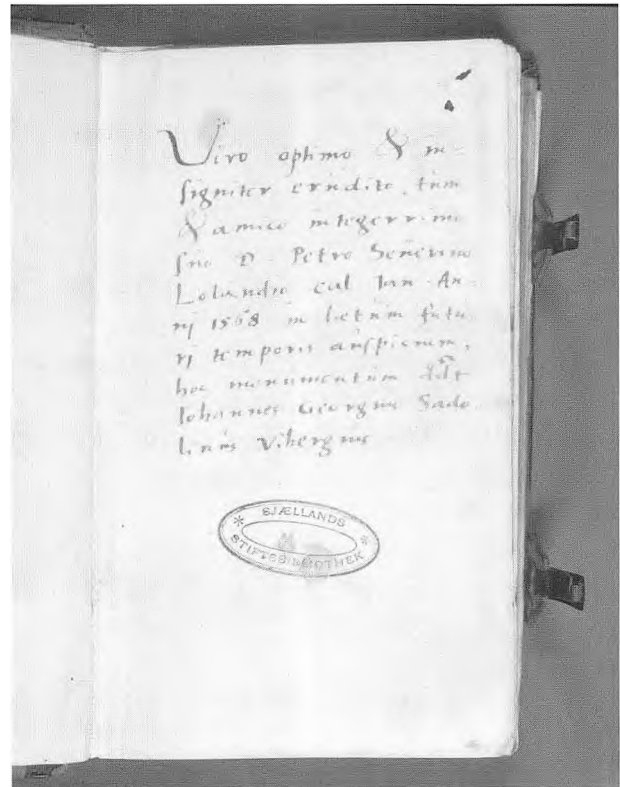 Viro optimo & in-
signiter erudito, tum
& amico integerrimo
suo D. Petro Seuerino
Lolandio cal Ian An-
nj 1568 in letum futu
rj temporis auspicium,
hoc monumentum
Iohannes Georgius Sado
linus Vibergius
SJÆLLANDS
STIFTSBIBLIOTHEK